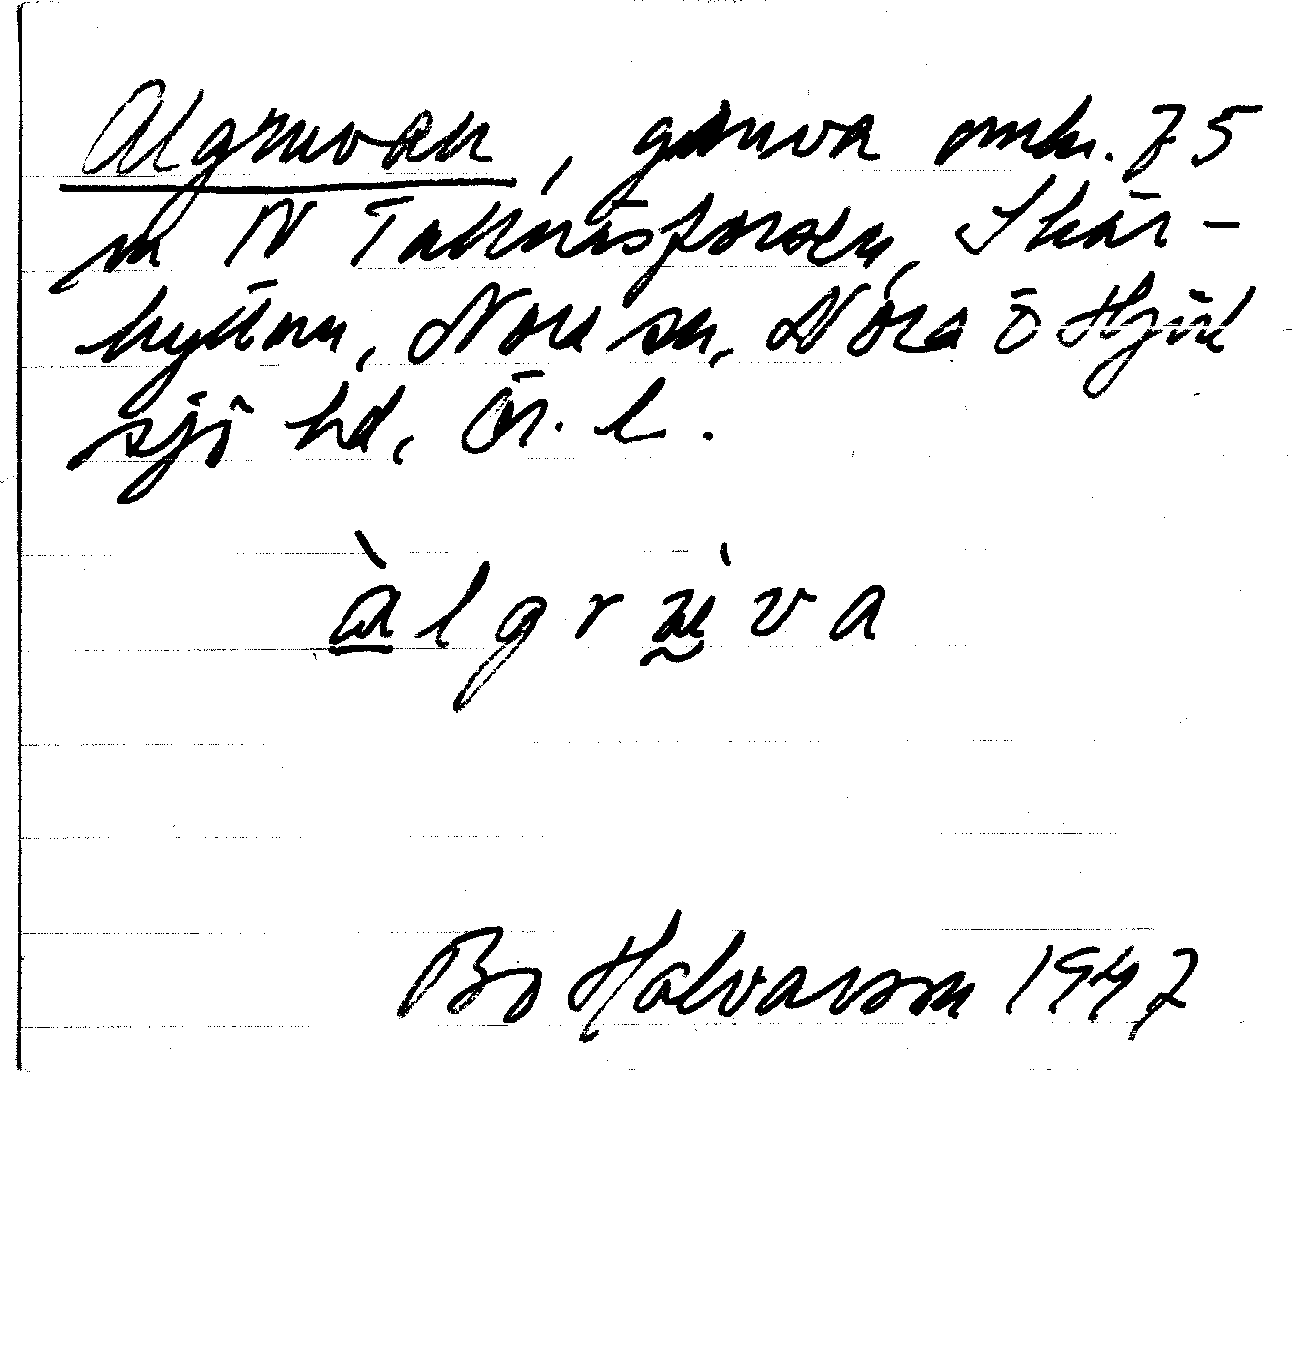 Algruvan, gruva omkr. 75
m N Tallnäsforsen, Skär-
hyttan, Nora sn, Nora o Hjul
sjö hd, Ör. l.
àlgrùva
Bo Halvarsson 1947